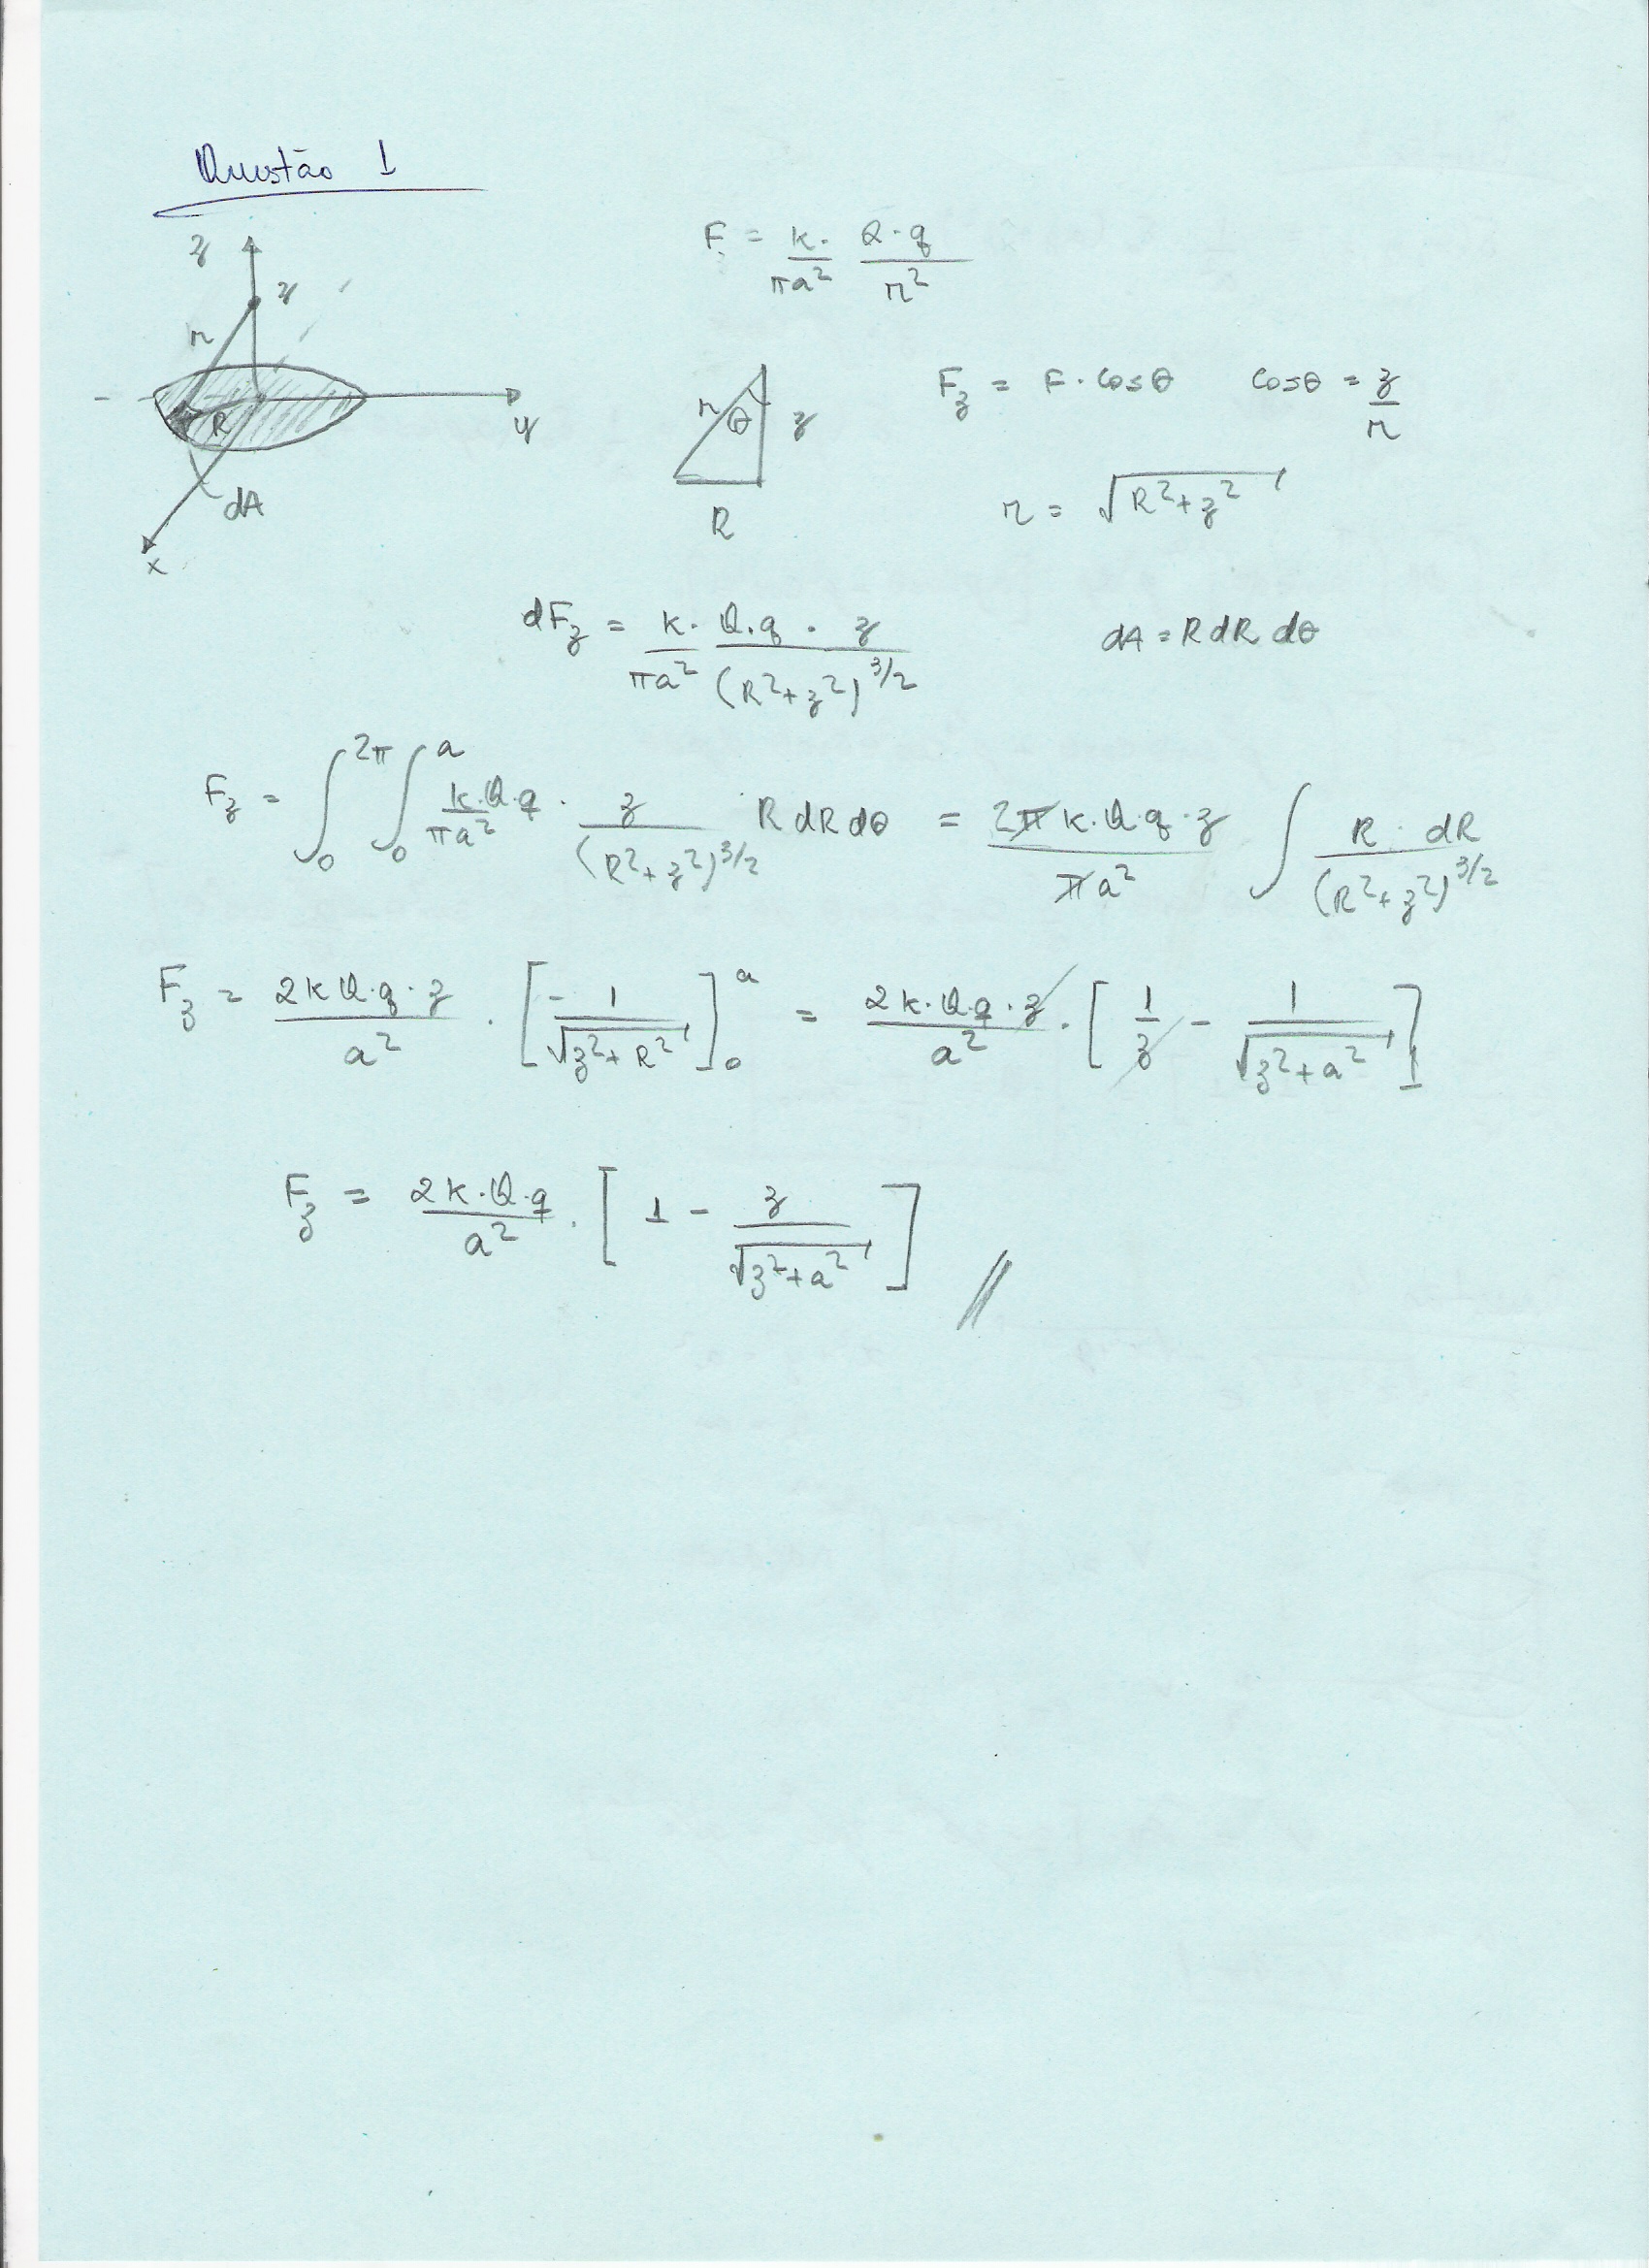 Questão 1
z
z
r
R
y
dA
x
F = k/πa² · Q·q/r²
r θ z
R
F_z = F·cosθ    cosθ = z/r
r = √(R²+z²)
dF_z = k/πa² · Q·q·z/(R²+z²)^(3/2)    dA = R dR dθ
F_z = ∫₀^2π ∫₀^a k·Q·q/πa² · z/(R²+z²)^(3/2) R dR dθ = 2πk·Q·q·z/πa² ∫ R·dR/(R²+z²)^(3/2)
F_z = 2kQ·q·z/a² · [-1/√(z²+R²)]₀^a = 2k·Q·q·z/a² · [1/z - 1/√(z²+a²)]
F_z = 2k·Q·q/a² · [1 - z/√(z²+a²)]